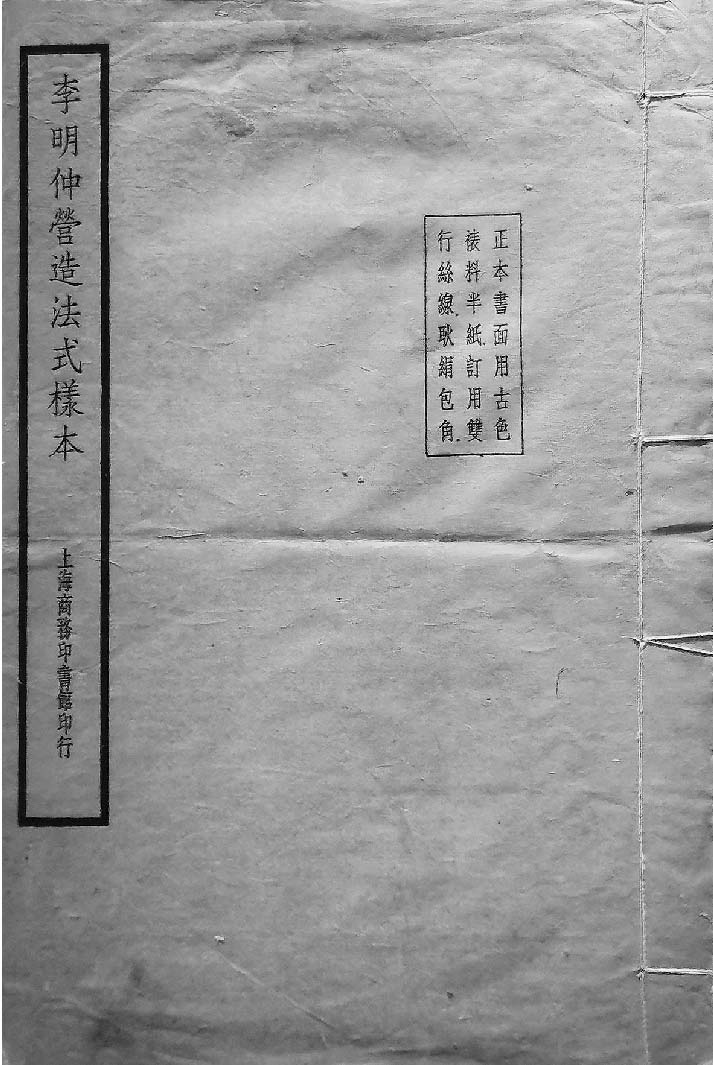 正本書面用古色
裱料半紙訂用雙
行絲線耿絹包角
李明仲營造法式樣本
上海商務印書館印行